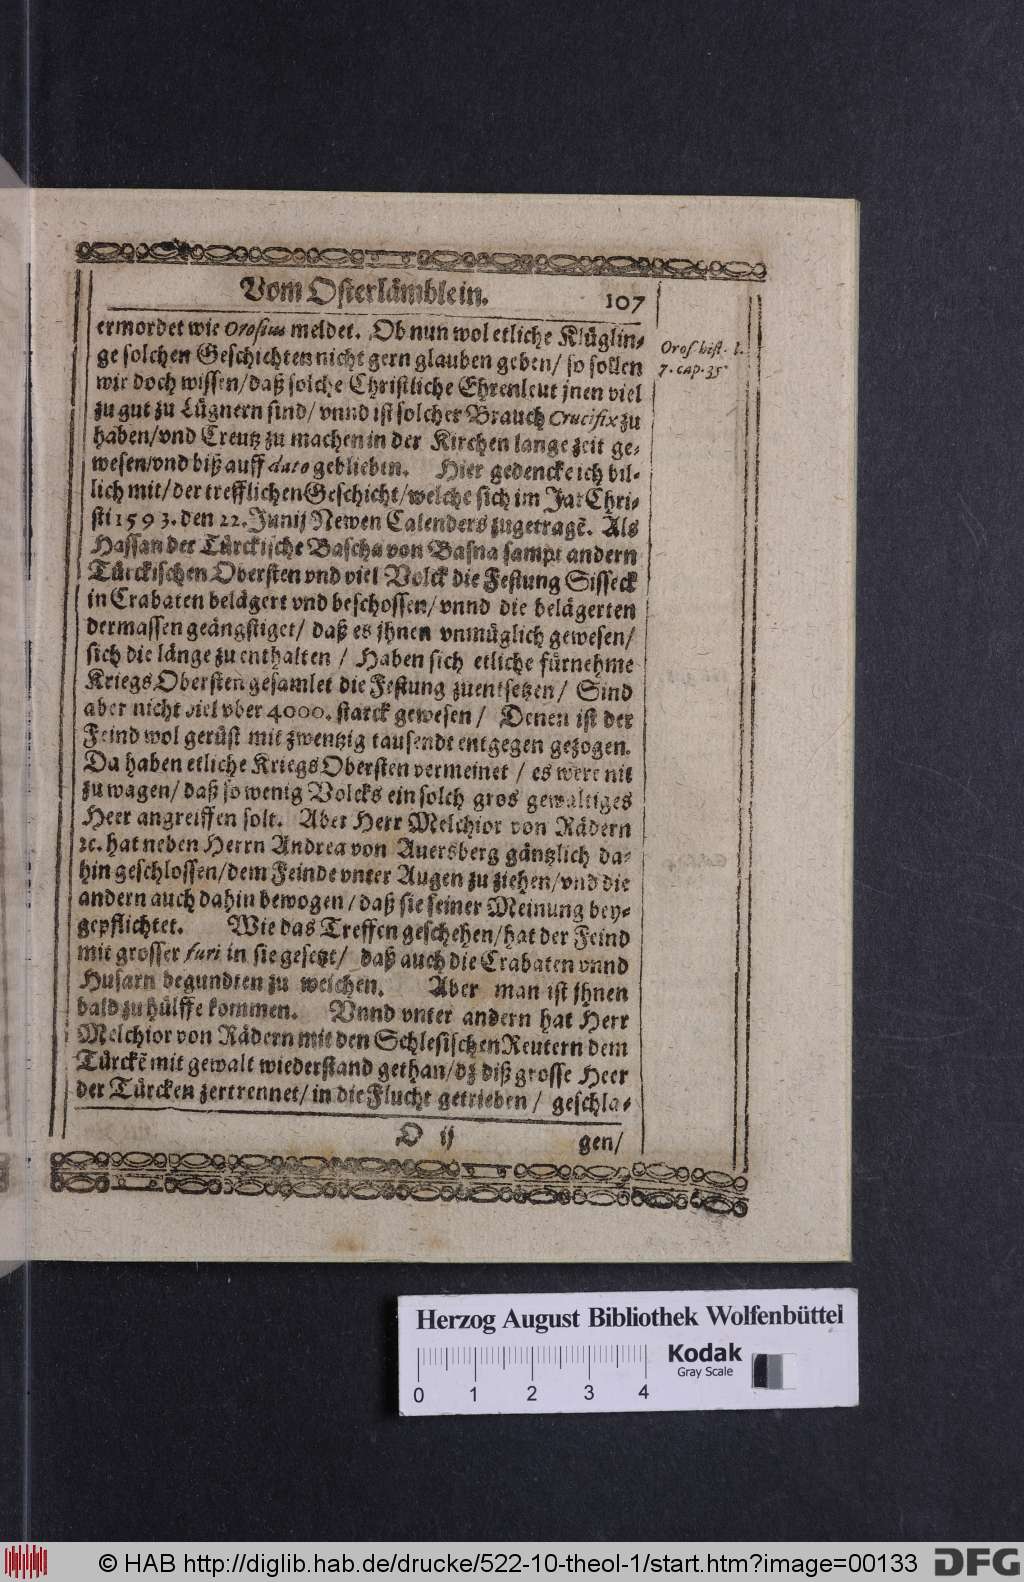 Vom Osterlämblein. 107
ermordet wie Orosius meldet. Ob nun wol etliche Klüglin-
ge solchen Geschichten nicht gern glauben geben/ so sollen
wir doch wissen/ daß solche Christliche Ehrenleut jnen viel
zu gut zu Lügnern sind/ vnnd ist solcher Brauch Crucifix zu
haben/ vnd Creutz zu machen in der Kirchen lange zeit ge-
wesen/ vnd biß auff dato geblieben. Hier gedencke ich bil-
lich mit/ der trefflichen Geschicht/ welche sich im Jar Chri-
sti 1593. den 22. Junij Newen Calenders zugetragē. Als
Hassan der Türckische Bascha von Basna sampt andern
Türckischen Obersten vnd viel Volck die Festung Sisseck
in Crabaten belägert vnd beschossen/ vnnd die belägerten
dermassen geängstiget/ daß es jhnen vnmüglich gewesen/
sich die länge zu enthalten / Haben sich etliche fürnehme
Kriegs Obersten gesamlet die Festung zuentsetzen/ Sind
aber nicht viel vber 4000. starck gewesen / Denen ist der
Feind wol gerüst mit zwentzig tausendt entgegen gezogen.
Da haben etliche Kriegs Obersten vermeinet / es were nit
zu wagen/ daß so wenig Volcks ein solch gros gewaltiges
Heer angreiffen solt. Aber Herr Melchior von Rädern
ꝛc. hat neben Herrn Andrea von Auersberg gäntzlich da-
hin geschlossen/ dem Feinde vnter Augen zu ziehen/ vnd die
andern auch dahin bewogen/ daß sie seiner Meinung bey-
gepflichtet. Wie das Treffen geschehen/ hat der Feind
mit grosser furi in sie gesetzt/ daß auch die Crabaten vnnd
Husarn begundten zu weichen. Aber man ist jhnen
bald zu hülffe kommen. Vnnd vnter andern hat Herr
Melchior von Rädern mit den Schlesischen Reutern dem
Türckē mit gewalt wiederstand gethan/ dz diß grosse Heer
der Türcken zertrennet/ in die Flucht getrieben / geschla-
O ij gen/
Oros. hist. l.
7. cap. 35
Herzog August Bibliothek Wolfenbüttel
Kodak
Gray Scale
0 1 2 3 4
© HAB http://diglib.hab.de/drucke/522-10-theol-1/start.htm?image=00133
DFG